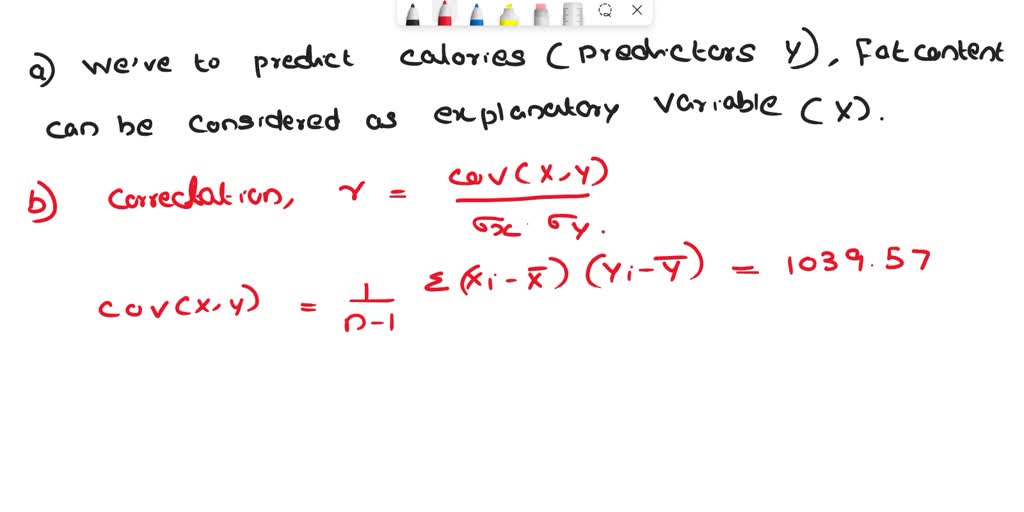 a) We've to predict calories (predictors Y), Fat content
can be considered as explanatory variable (X).
b) Correclation, r = cov(X,Y) / σx · σy.
cov(X,Y) = 1/n-1 Σ(Xi - X̄)(Yi - Y̅) = 1039.57